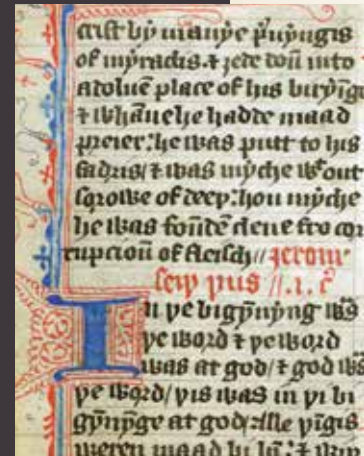 crist by manye p̄uyngis
of myraclis. ⁊ ȝede doū into
a doluē place of his biryīg
⁊ whāne he hadde maad
preier: he was putt to his
fadris/ ⁊ was myche wͭout
sorowe of deeþ: hou myche
he was foūdē clene fro cor
rupcioū of fleisch// Jerom
seiþ þus //.1. c̄
In þe bigȳnyng was
þe word ⁊ þe word
was at god/ ⁊ god was
þe word/ þis was in þe bi
gȳnȳge at god: alle þīgis
weren maad bi hī: ⁊ wiþ